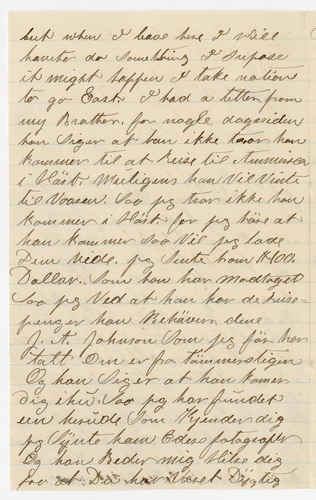 but when I leave here I will
haveto do Something I Supose
it might happen I take nation
to go East. I had a letter from
my Brother. for nogle dagesiden
han Siger at han ikke troor han
kommer til at Reise til Ammerica
i Höst. Muligens han Vil Vinte
til Vaaren. Saa jeg troer ikke han
kommer i Höst for jeg höre at
han kommer Saa Vil jeg lade
Dem vede. jeg Sente ham $100.
Dollar. Som han har Modtaget
Saa jeg Ved at han har de reise-
penger han Behöver. dene
J. A. Johnson Som jeg för har
talt Om er fra tömmerstigen
Og han Siger at han kamer
dig ihu. Saa jeg har fundet
en herude Som Kjender dig
jeg Synte ham Eders fotografier
Og han Beder mig Hilse dig
fra Det har Været Dögtig